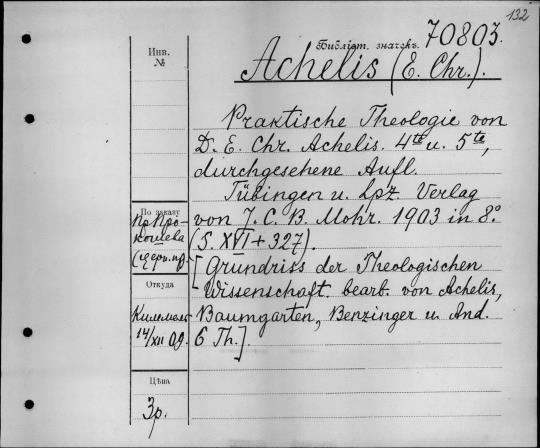 132
Библіот. значекъ. 70803.
Achelis (E. Chr.).
Praktische Theologie von
D. E. Chr. Achelis. 4te u. 5te,
durchgesehene Aufl.
Tübingen u. Lpz. Verlag
von J. C. B. Mohr. 1903 in 8°
(S. XVI + 327).
[Grundriss der Theologischen
Wissenschaft. bearb. von Achelis,
Baumgarten, Benzinger u. And.
6 Th.].
Инв.
№
По заказу
Пр Про-
кошева
Откуда
14/XII 09.
Цѣна
3р.